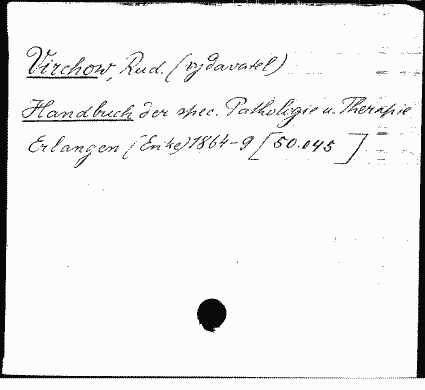 Virchow, Rud. (vydavatel)
Handbuch der spec. Pathologie u. Therapie
Erlangen (Enke) 1864-9 [50.045 ]